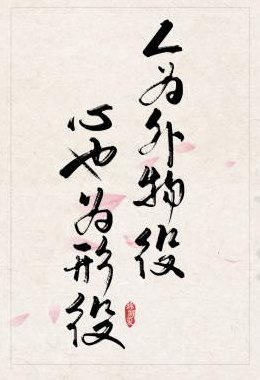 人为外物役
心也为形役